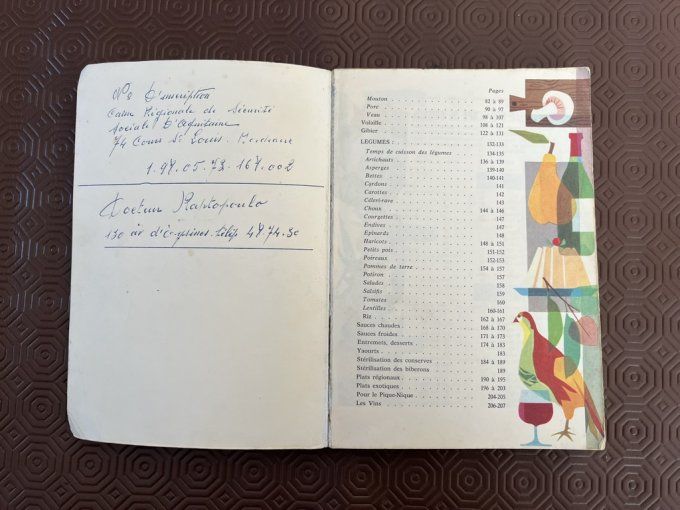 N° D'inscription
Caisse Régionale de Sécurité
Sociale D'Aquitaine
74 Cours St Louis. Bordeaux
1.98.05.73.167.002
Docteur
130 av d'
48.74.30
Pages
Mouton 82 à 89
Porc 90 à 97
Veau 98 à 107
Volaille 108 à 121
Gibier 122 à 131
LEGUMES : 132-133
Temps de cuisson des légumes 134-135
Artichauts 136 à 139
Asperges 139-140
Bettes 140-141
Cardons 141
Carottes 142
Céleri-rave 143
Choux 144 à 146
Courgettes 147
Endives 147
Epinards 147
Haricots 148 à 151
Petits pois 151-152
Poireaux 152-153
Pommes de terre 154 à 157
Potiron 157
Salades 158
Salsifis 159
Tomates 160
Lentilles 160-161
Riz 162 à 167
Sauces chaudes 168 à 170
Sauces froides 171 à 173
Entremets, desserts 174 à 183
Yaourts 183
Stérilisation des conserves 184 à 189
Stérilisation des biberons 189
Plats régionaux 190 à 195
Plats exotiques 196 à 203
Pour le Pique-Nique 204-205
Les Vins 206-207